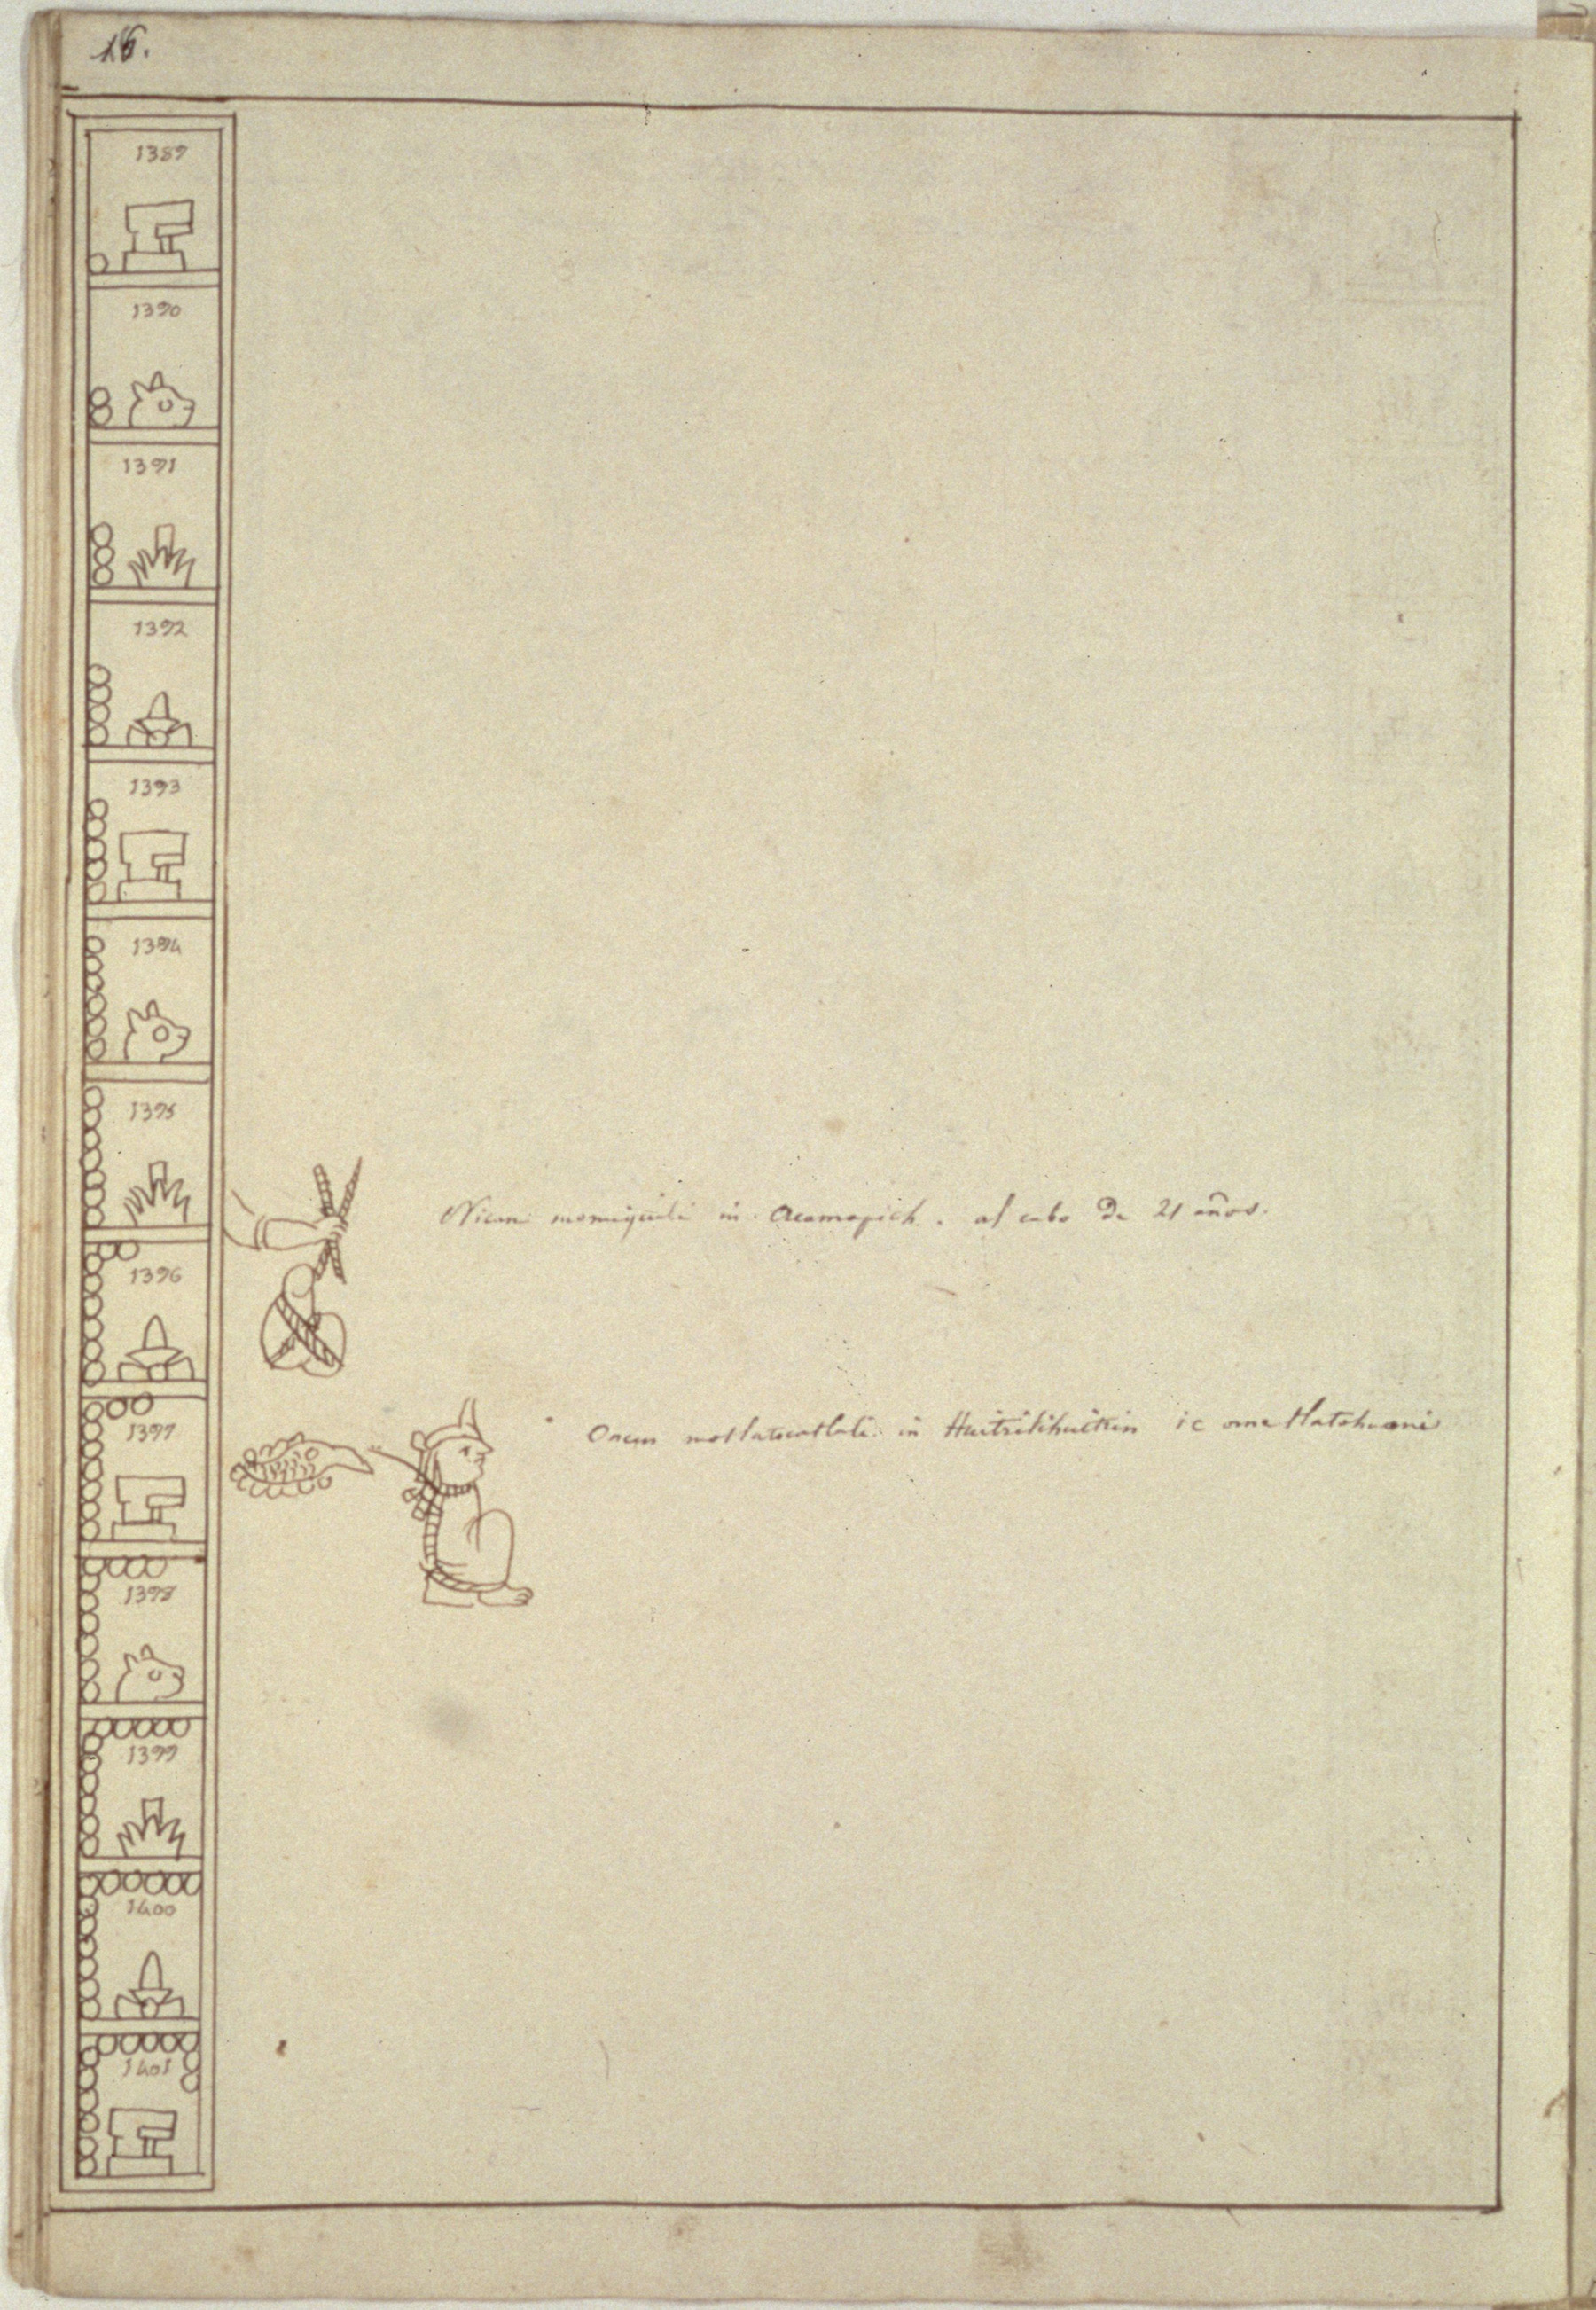 16.
1389
1390
1391
1392
1393
1394
1395
Nican momiquili in Acamapich. al cabo de 21 años.
1396
1397
Oncan motlatocatlali in Huitzilihuitzin ic ome tlatohuani
1398
1399
1400
1401